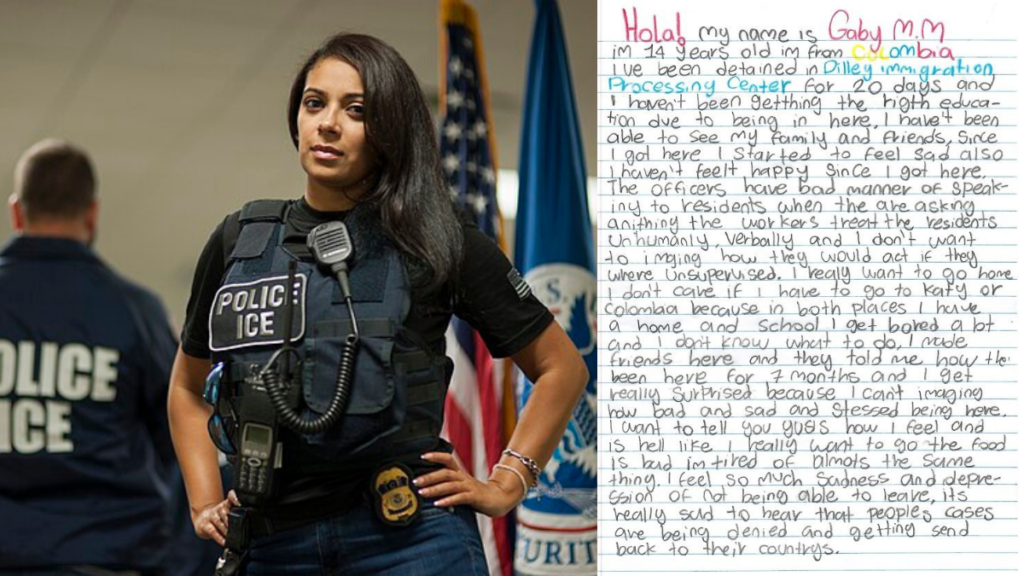 POLICE
ICE
POLICE
ICE
S.
URIT
Hola! my name is Gaby M.M
im 14 years old im from COLOMbia
I've been detained in Dilley immigration
Processing Center for 20 days and
I haven't been getthing the rigth educa-
tion due to being in here, I have't been
able to see my family and friends, Since
I got here I started to feel sad also
I haven't feelt happy since I got here.
The officers have bad manner of speak-
ing to residents when the are asking
anithing the workers treat the residents
unhumanly, verbally and I don't want
to imging how they would act if they
where unsupervised. I really want to go home
I don't care if I have to go to Katy or
Colombia because in both places I have
a home and school I get bored a lot
and I don't know what to do, I made
friends here and they told me how the
been here for 7 months and I get
really surprised because I can't imaging
how bad and sad and stessed being here.
I want to tell you guys how I feel and
is hell like I really want to go the food
is bad im tired of almots the same
thing. I feel so much sadness and depre-
ssion of not being able to leave, its
really sad to hear that peoples cases
are being denied and getting send
back to their countrys.